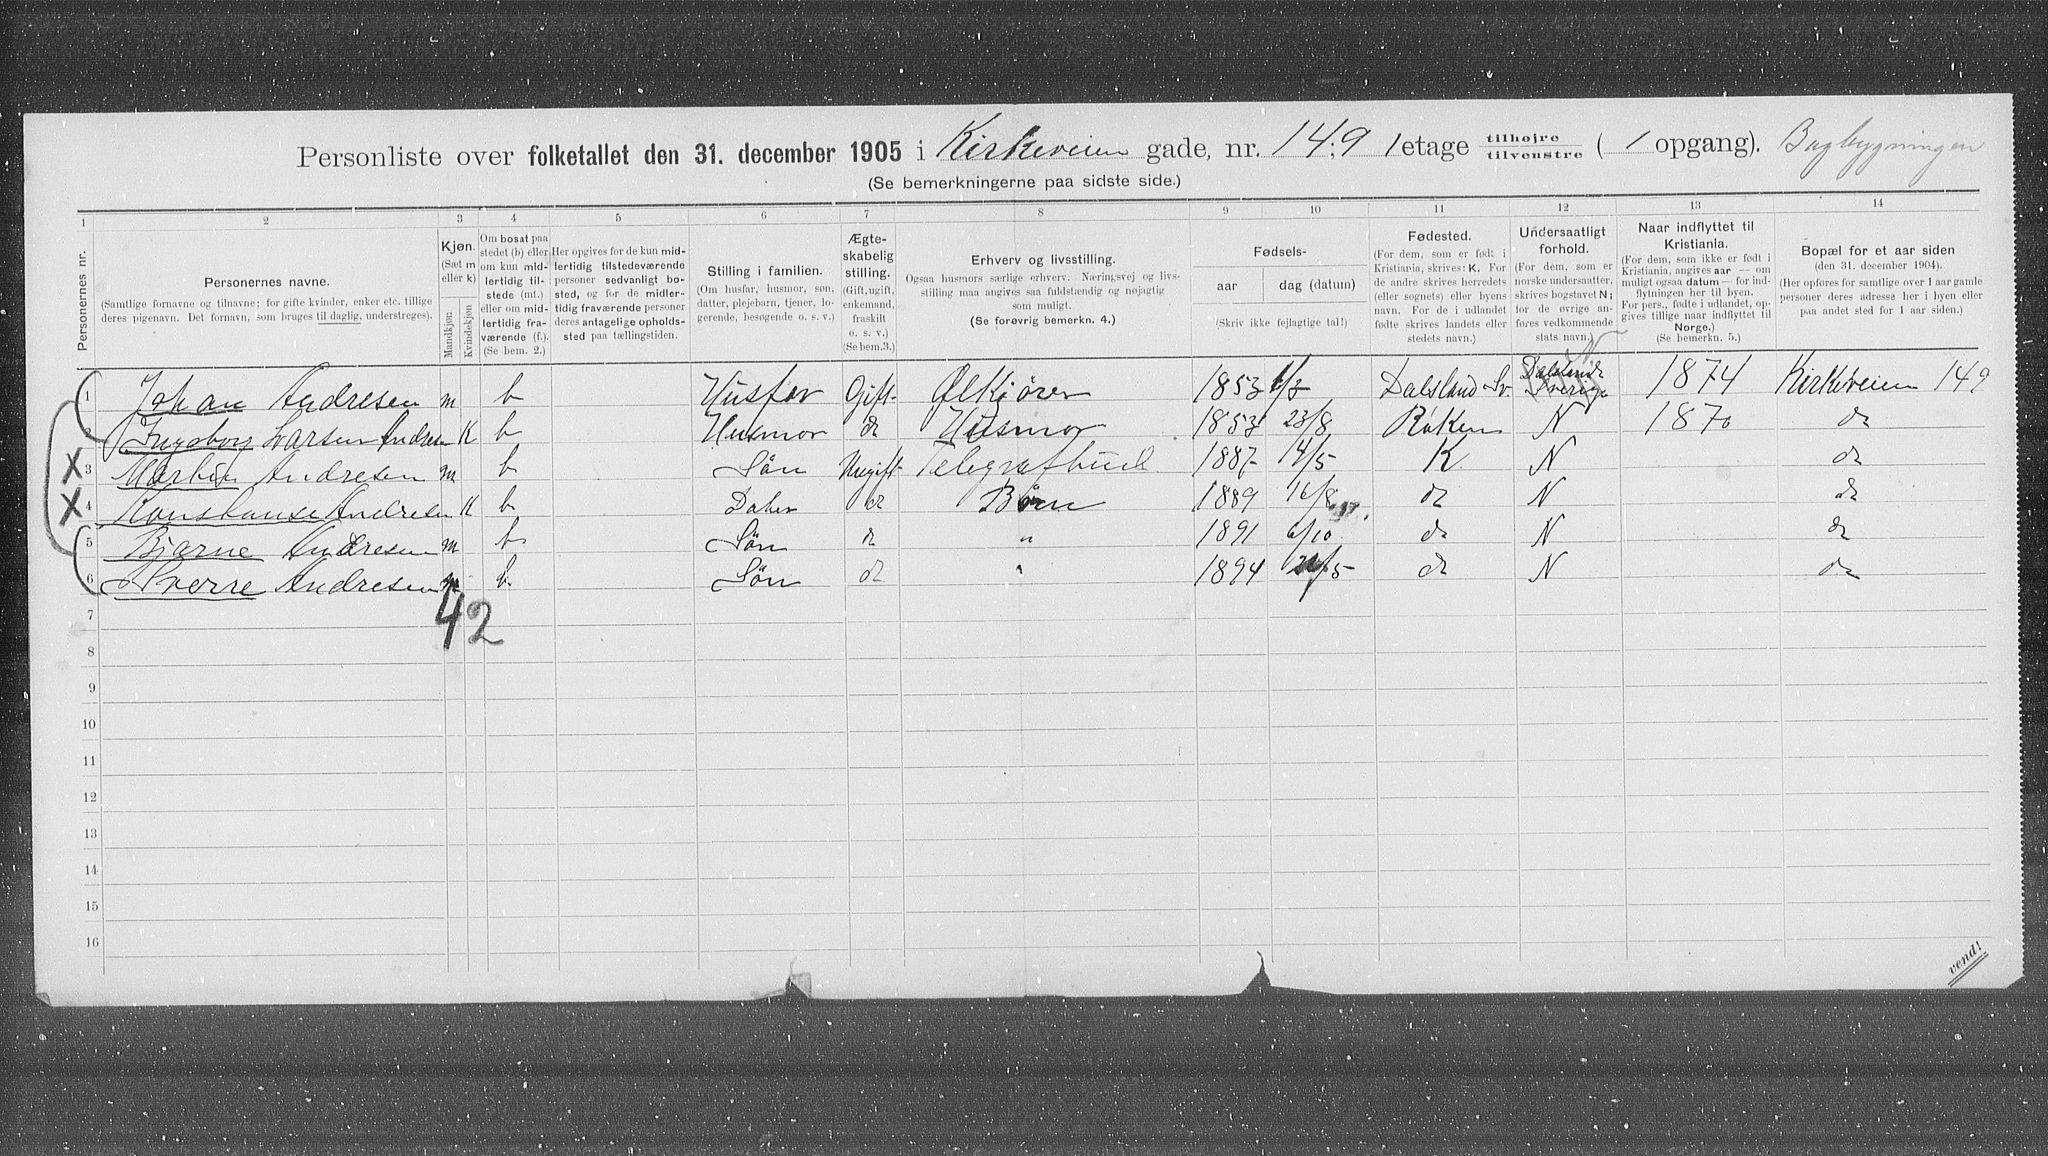 Personliste over folketallet den 31. december 1905 i Kirkeveien gade, nr. 14,9 1 etage tilhøjre / tilvenstre ( 1 opgang). Bagbygningen
(Se bemerkningerne paa sidste side.)
1 2 3 4 5 6 7 8 9 10 11 12 13 14
Personernes nr.
Personernes navne.
(Samtlige fornavne og tilnavne; for gifte kvinder, enker etc. tillige
deres pigenavn. Det fornavn, som bruges til daglig, understreges).
Kjøn.
(Sæt m
eller k)
Mandkjøn.
Kvindekjøn
Om bosat paa
stedet (b) eller
om kun mid-
lertidig til-
stede (mt.)
eller om mid-
lertidig fra-
værende (f.).
(Se bem. 2.)
Her opgives for de kun mid-
lertidig tilstedeværende
personer sedvanligt bo-
sted, og for de midler-
tidig fraværende personer
deres antagelige opholds-
sted paa tællingstiden.
Stilling i familien.
(Om husfar, husmor, søn,
datter, plejebarn, tjener, lo-
gerende, besøgende o. s. v.)
Ægte-
skabelig
stilling.
(Gift, ugift,
enkemand,
fraskilt
o. s. v.)
(Se bem.3.)
Erhverv og livsstilling.
Ogsaa husmors særlige erhverv. Næringsvej og livs-
stilling maa angives saa fuldstændig og nøjagtig
som muligt.
(Se forøvrig bemerkn. 4.)
Fødsels-
aar
dag (datum)
(Skriv ikke fejlagtige tal!)
Fødested.
(For dem, som er født i
Kristiania, skrives: K. For
de andre skrives herredets
(eller sognets) eller byens
navn. For de i udlandet
fødte skrives landets eller
stedets navn.)
Undersaatligt
forhold.
(For dem, som er
norske undersaatter,
skrives bogstavet N;
for de øvrige an-
føres vedkommende
stats navn.)
Naar indflyttet til
Kristiania.
(For dem, som ikke er født i
Kristiania, angives aar — om
muligt ogsaa datum — for ind-
flytningen her til byen.
For pers., fødte i udlandet, op-
gives tillige naar indflyttet til
Norge.)
(Se bemerkn. 5.)
Bopæl for et aar siden
(den 31. december 1904).
(Her opføres for samtlige over 1 aar gamle
personer deres adresse her i byen eller
paa andet sted for 1 aar siden.)
1 Johan Andresen m b Husfar Gift Ølkjører 1853 6/3 Dalsland Sv. Dalsland Sverige N 1874 Kirkeveien 149
2 Ingeborg Larsen Andresen K b Husmor do Husmor 1853 23/8 Røken N 1870 do
X 3 Martin Andresen m b Søn Ugift Telegrafbud 1887 14/5 K N do
X 4 Konstanse Andresen K b Dater do Børn 1889 16/8 do N do
5 Bjarne Andresen m b Søn do " 1891 6/10 do N do
6 Sverre Andresen m b Søn do " 1894 /5 do N do
42
7
8
9
10
11
12
13
14
15
16
vend!